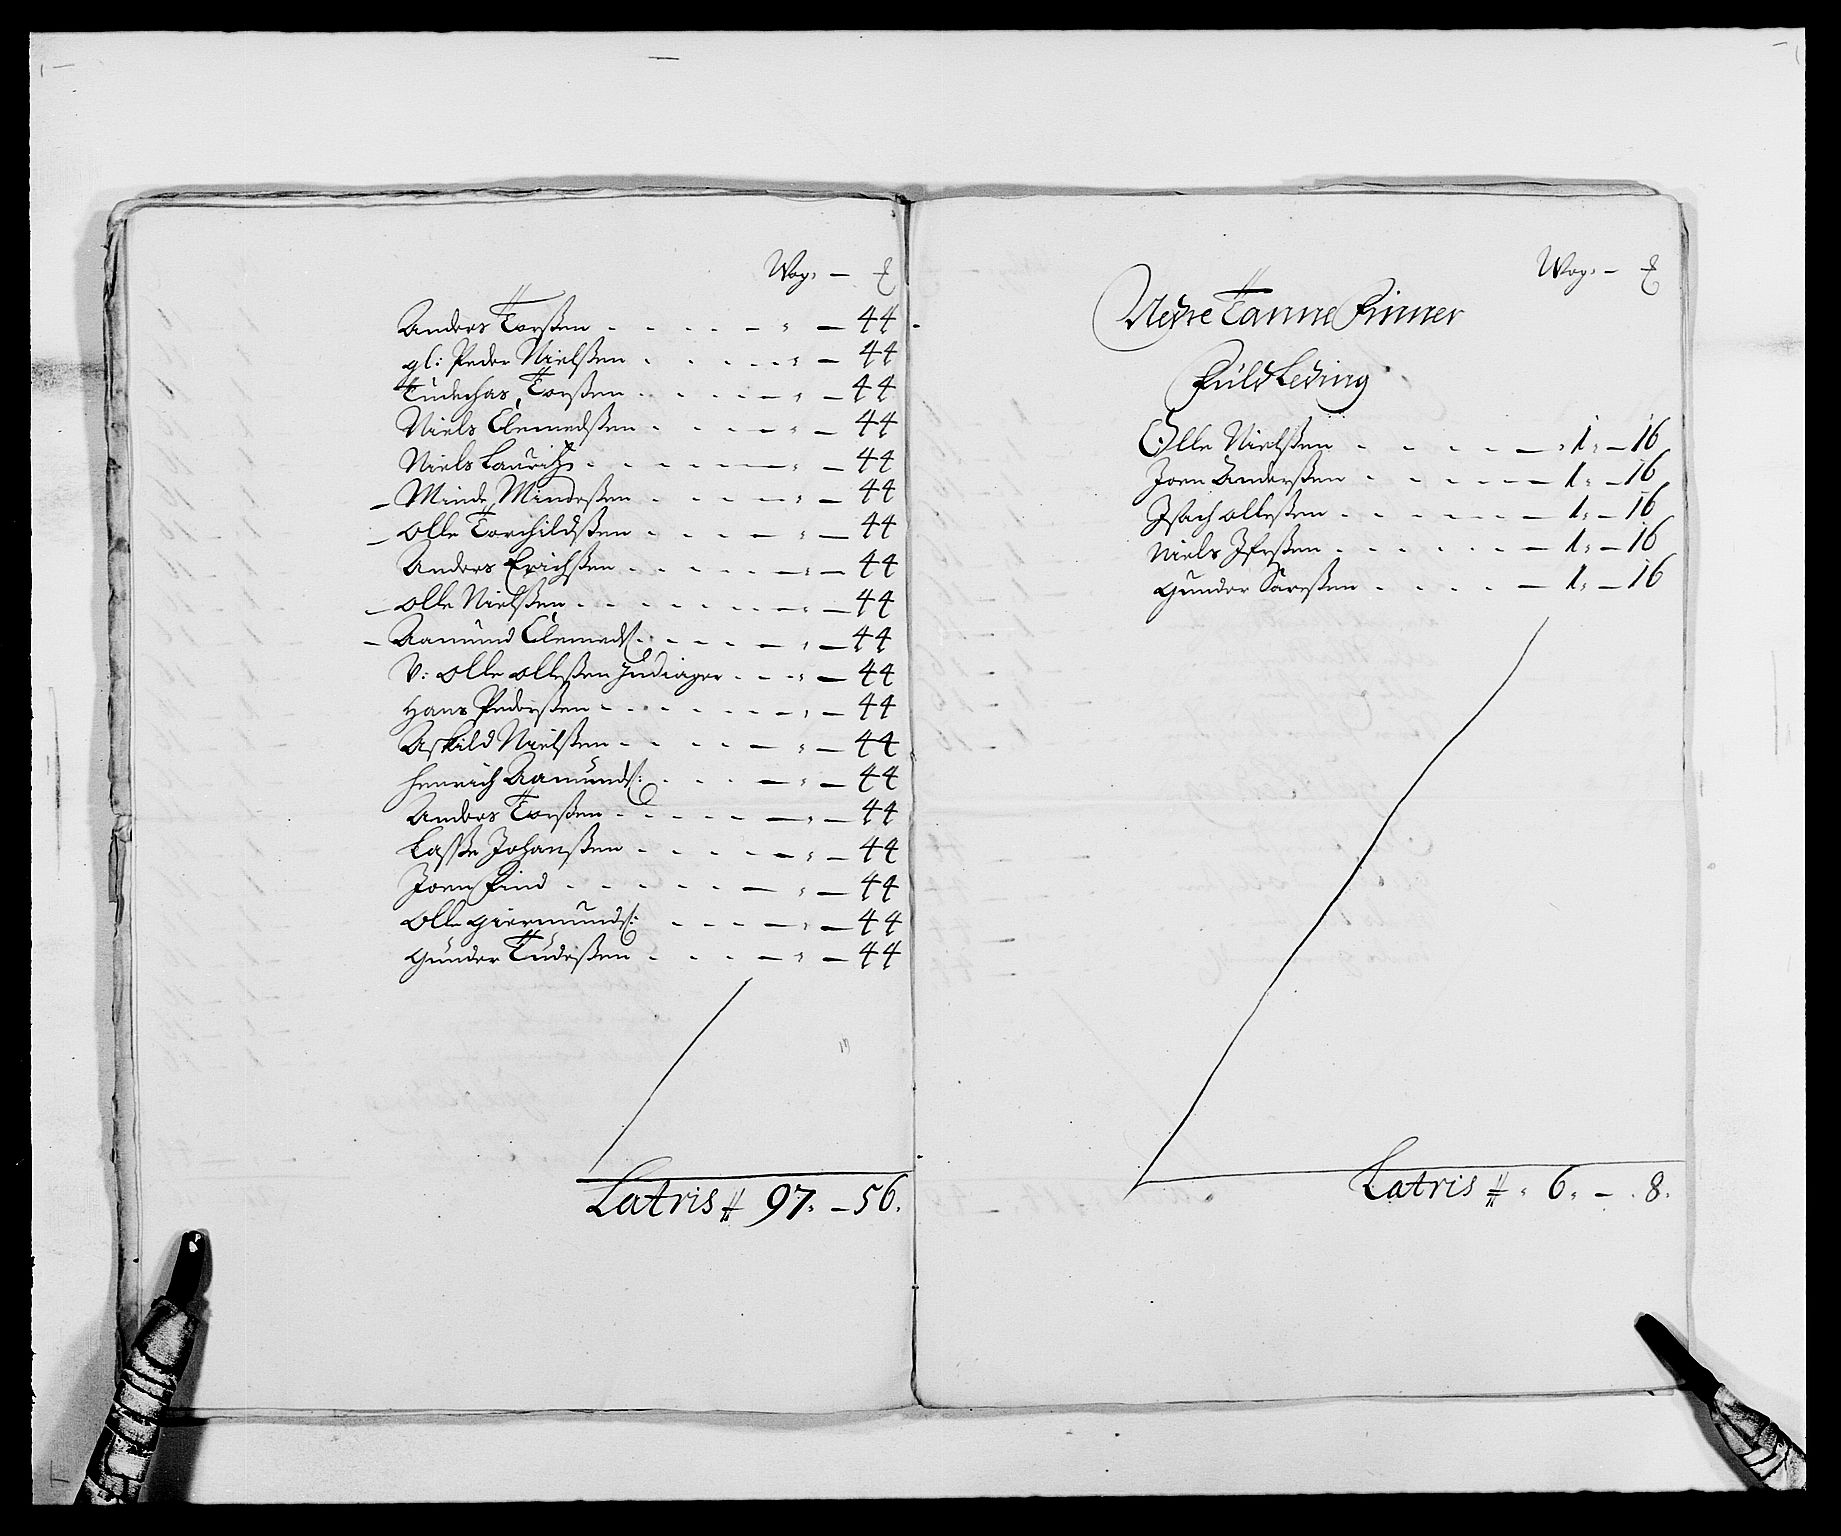 Wog: — ℔
Anders Torßen - - - - - " — 44
gl: Peder Nielßen - - - - " — 44
Tudechas Torßen - - - - " — 44
Niels Clemedßen - - - - " — 44
Niels Lauritz - - - - - " — 44
— Minde Mindeßen - - - - " — 44
— Olle Torchildßen - - - - " — 44
Anders Erichßen - - - - " — 44
— Olle Nielßen - - - - - " — 44
— Aamund Clemeds: - - - - " — 44
V: Olle Olleßen Judiager - - - " — 44
Hans Pederßen - - - - - " — 44
Askild Nielßen - - - - " — 44
Henrich Aamunds: - - - - " — 44
Anders Torßen - - - - - " — 44
Laße Johanßen - - - - - " — 44
Joen Find - - - - - - " — 44
Olle Giermunds: - - - - " — 44
Gunder Tudeßen - - - - " — 44
Latris # 97: — 56.
Wog: — ℔
Nedre Tanne Finner
Fuld Leding
Olle Nielßen - - - - - — 1: — 16
Joen Anderßen - - - - - — 1: — 16
Isach Olleßen - - - - - — 1: — 16
Niels Iferßen - - - - - — 1: — 16
Gunder Sareßen - - - - — 1: — 16
Latris # " 6: — . 8.